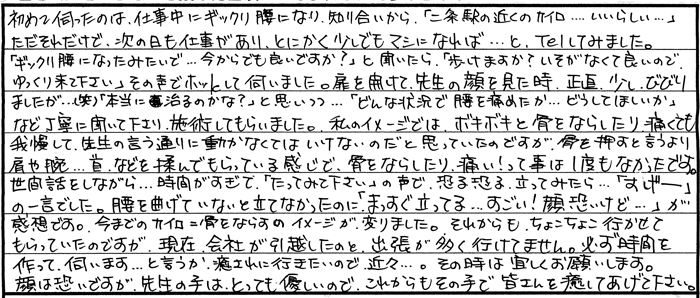 初めて伺ったのは、仕事中にギックリ腰になり、知り合いから、「二条駅の近くのカイロ……いいらしい…」
ただそれだけで、次の日も仕事があり、とにかく少しでもマシになれば…と、Telしてみました。
「ギックリ腰になったみたいで…今からでも良いですか?」と聞いたら、「歩けますか?いそがなくて良いので、
ゆっくり来て下さい」その声でホッとして伺いました。扉を開けて、先生の顔を見た時、正直、少しびびり
ましたが…(笑)「本当に治るのかな?」と思いつつ…「どんな状況で腰を痛めたか…どうしてほしいか」
など丁寧に聞いて下さり、施術してもらいました。私のイメージでは、ボキボキと骨をならしたり、痛くても
我慢して、先生の言う通りに動かなくてはいけないのだと思っていたのですが、骨を押すと言うより
肩や腕…首、などを揉んでもらっている感じで、骨をならしたり、痛い!って事は1度もなかったです。
世間話をしながら…時間がすぎて、「たってみて下さい」の声で、恐る恐る、立ってみたら…「すげー」
の一言でした。腰を曲げていないと立てなかったのに、まっすぐ立ってる…すごい!顔恐いけど…」が
感想です。今までのカイロ=骨をならすのイメージが、変りました。それからも、ちょこちょこ行かせて
もらっていたのですが、現在、会社が引越したのと、出張が多く行けてません。必ず時間を
作って、伺います…と言うか、癒されに行きたいので、近々…。その時は宜しくお願いします。
顔は恐いですが、先生の手は、とっても優しいので、これからもその手で皆さんを癒してあげて下さい。